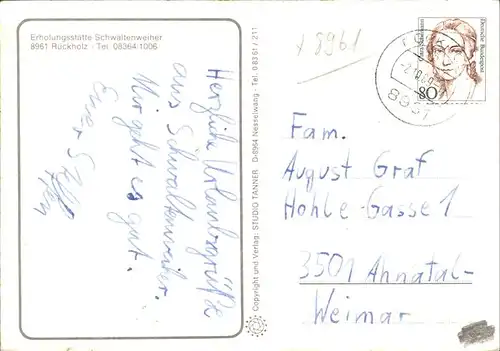 Erholungsstätte Schwaltenweiher
8961 Rückholz · Tel. 08364/1006
Herzliche Urlaubsgrüße
aus Schwaltenweiher.
Mir geht es gut.
Euer
Copyright und Verlag: STUDIO TANNER D-8964 Nesselwang - Tel. 0 83 61 / 211
+ 8961
Deutsche Bundespost
80
8961
Fam.
August Graf
Hohle-Gasse 1
3501 Ahnatal-
Weimar